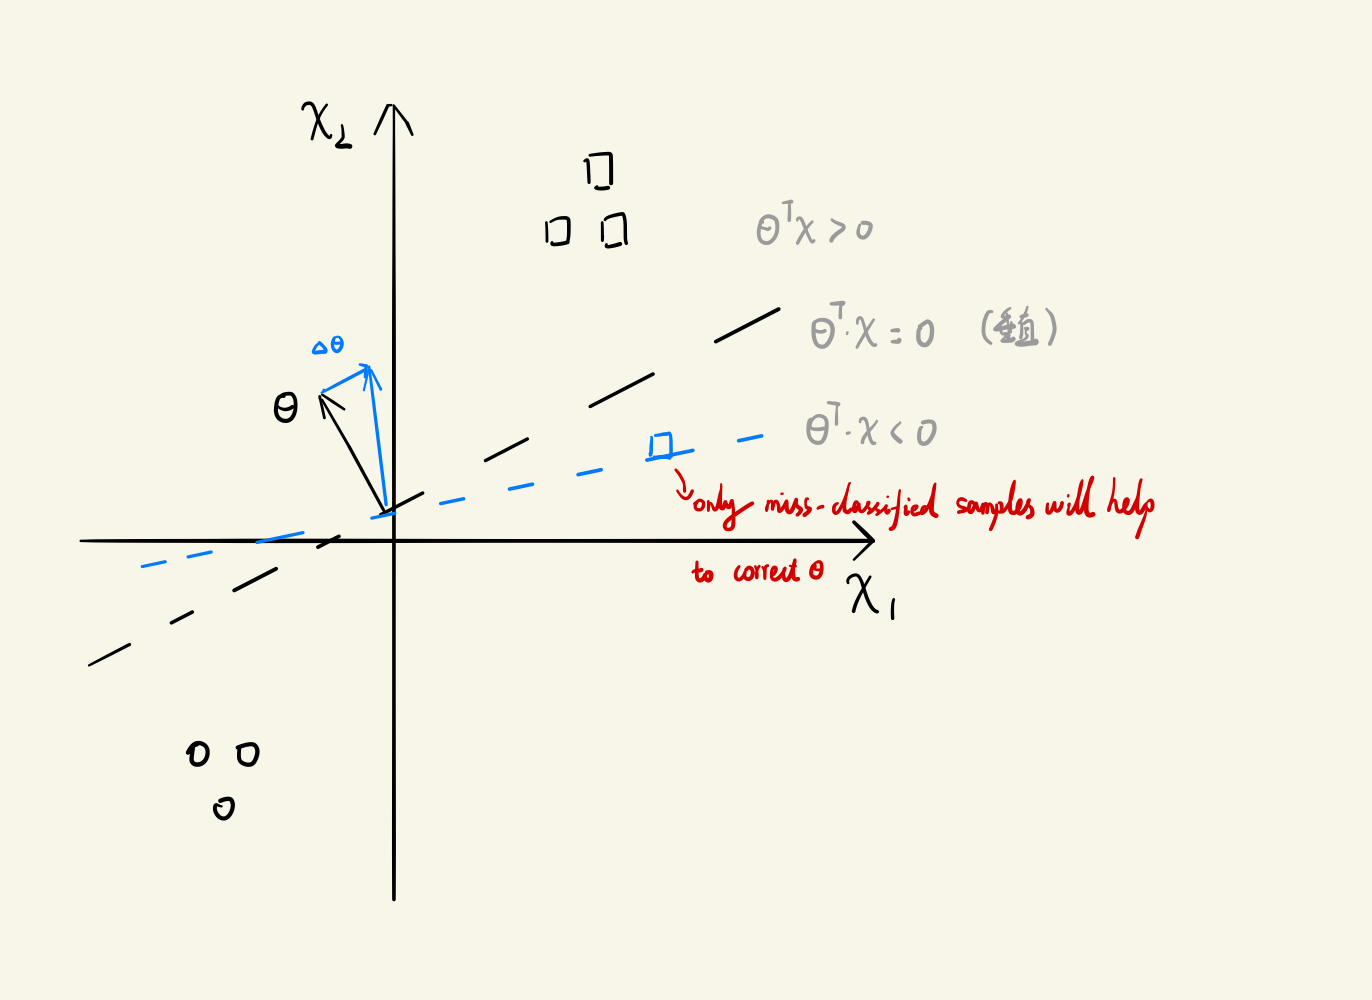 χ₂
θᵀχ > 0
Δθ
θᵀ·χ = 0
θ
θᵀ·χ < 0
only miss-classified samples will help
to correct θ
χ₁